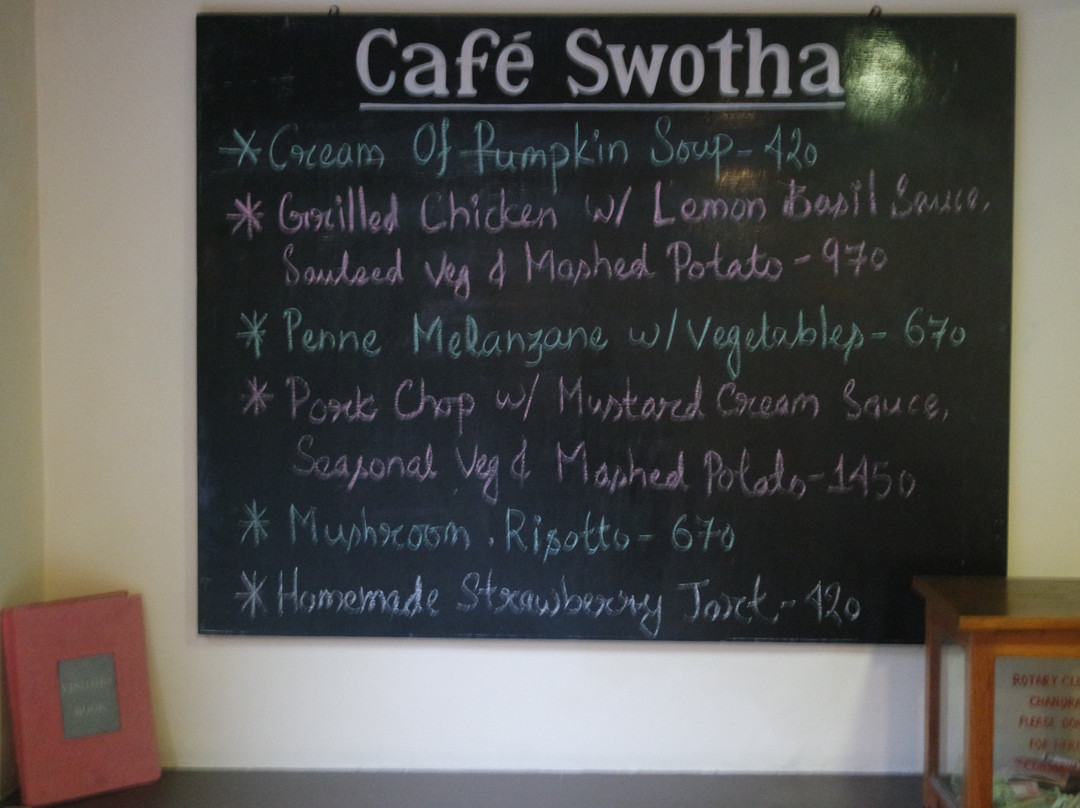 Café Swotha
* Cream Of Pumpkin Soup - 420
* Grilled Chicken w/ Lemon Basil Sauce,
Sauteed Veg & Mashed Potato - 970
* Penne Melanzane w/ Vegetables - 670
* Pork Chop w/ Mustard Cream Sauce,
Seasonal Veg & Mashed Potato - 1450
* Mushroom . Risotto - 670
* Homemade Strawberry Tart - 420
VISITORS
BOOK
ROTARY CL
CHANDRA
PLEASE DO
FOR